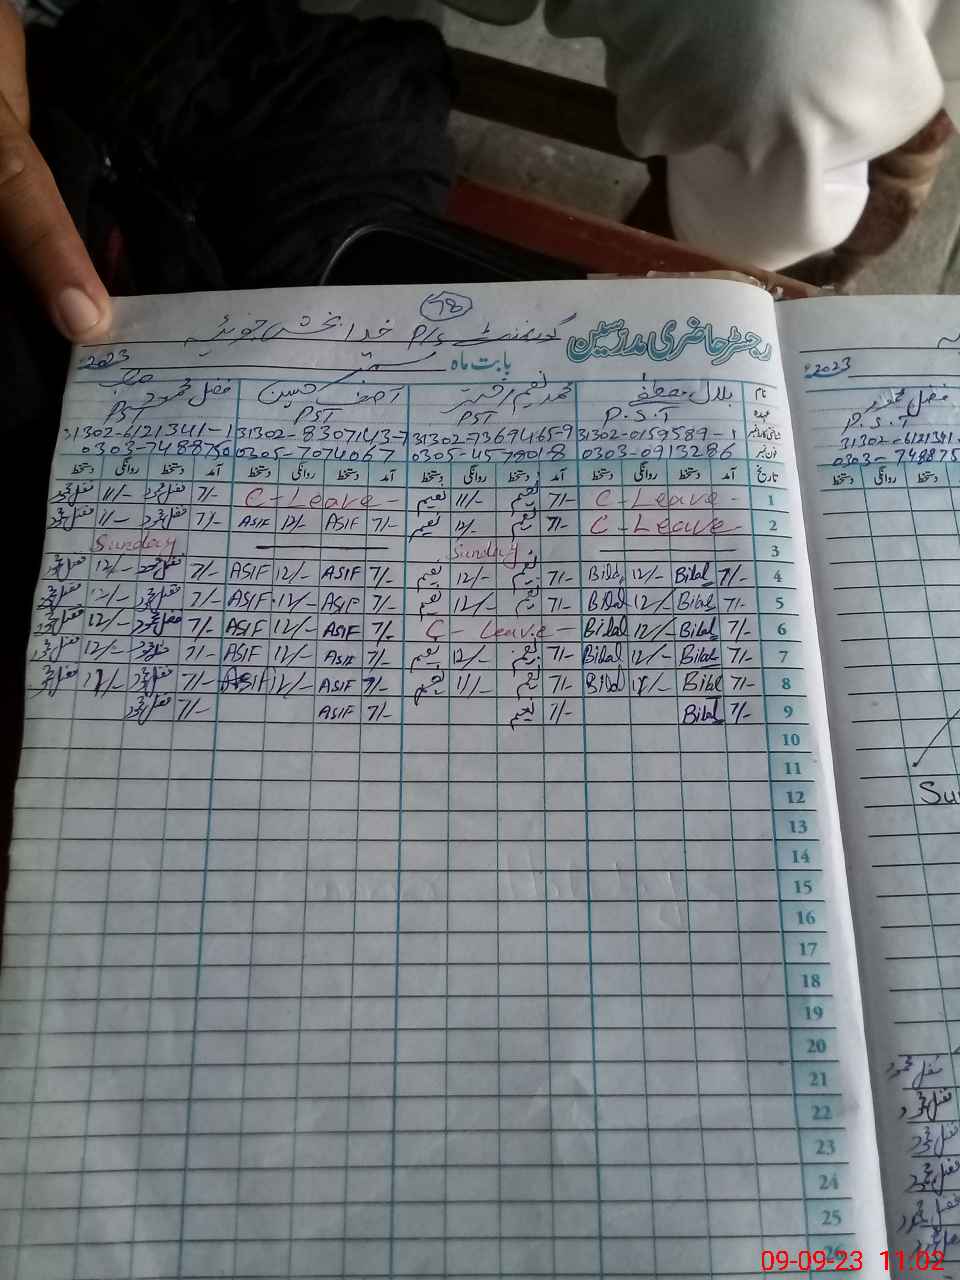 78
گورنمنٹ P/S خدا بخش جوئیہ
رجسٹر حاضری مدرسین
بابت ماہ ستمبر 2023
نام بلال مصطفیٰ محمد نعیم اختر آصف حسین فضل محمود
عہدہ P.S.T PST PST PST
شناختی کارڈ نمبر 31302-0159589-1 31302-7369465-9 31302-8307143-7 31302-6121341-1
فون نمبر 0303-0913286 0305-4579018 0305-7074067 0303-7488750
تاریخ آمد دستخط روانگی دستخط آمد دستخط روانگی دستخط آمد دستخط روانگی دستخط آمد دستخط روانگی دستخط
1 C-Leave 7/- نعیم 11/- نعیم C-Leave 7/- 11/-
2 C-Leave 7/- نعیم 12/- نعیم 7/- ASIF 12/- ASIF 7/- 11/-
3 Sunday Sunday
4 7/- Bilal 12/- Bilal 7/- نعیم 12/- نعیم 7/- ASIF 12/- ASIF 7/- 12/-
5 7/- Bilal 12/- Bilal 7/- نعیم 12/- نعیم 7/- ASIF 12/- ASIF 7/- 12/-
6 7/- Bilal 12/- Bilal C-Leave 7/- ASIF 12/- ASIF 7/- 12/-
7 7/- Bilal 12/- Bilal 7/- نعیم 12/- نعیم 7/- ASIF 12/- ASIF 7/- 12/-
8 7/- Bilal Bilal 7/- نعیم 11/- نعیم 7/- ASIF 12/- ASIF 7/-
9 7/- Bilal 7/- نعیم 7/- ASIF 7/-
10
11
12
13
14
15
16
17
18
19
20
21
22
23
24
25
26
2023
فضل محمود
P.S.T
31302-6121341
0303-748875
دستخط روانگی دستخط
Su
09-09-23 11:02